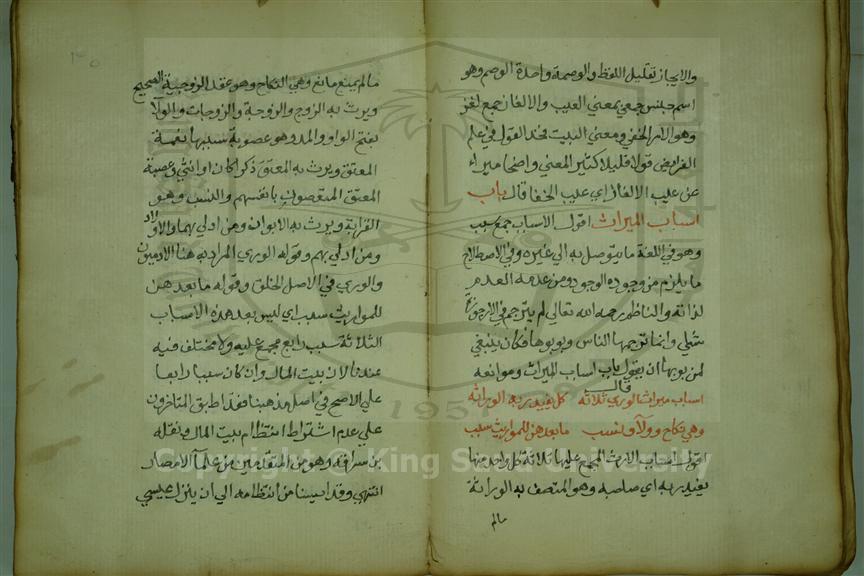 والايجاز تقليل اللفظ والوصمة واحدة الوصم وهو
اسم جنس جمعي بمعني العيب والالغاز جمع لغز
وهو الامر الخفي ومعني البيت فخذ القول في علم
الفرايض قولا قليلا كثير المعني واضحا مبرا
عن عيب الالغاز اي عيب الخفا قال باب
اسباب الميراث اقول الاسباب جمع سبب
وهو في اللغة ما يتوصل به الي غيره وفي الاصطلاح
ما يلزم من وجوده الوجود ومن عدمه العدم
لذاته والناظم رحمه الله تعالي لم يترجم في الارجوزة
شيئ وانما ترجمها الناس وبوبوها فكان ينبغي
لمن بوبها ان يقول باب اسباب الميراث وموانعه
قال
اسباب ميراث الوري ثلاثه كل يفيد ربه الوراثه
وهي نكاح وولآ ونسب ما بعدهن للمواريث سبب
اقول اسباب الارث المجمع عليها ثلاثة كل واحد منها
يفيد ربه اي صاحبه وهو المتصف به الوراثة
مالم
مالم يمنع مانع وهي النكاح وهو عقد الزوجية الصحيح
ويرث به الزوج والزوجة والزوجات والولآ
بفتح الواو والمد وهو عصوبة سببها نعمة
المعتق ويرث به المعتق ذكرا كان او انثي وعصبة
المعتق المتعصبون بانفسهم والنسب وهو
القرابة ويرث به الابوان ومن ادلي بهما والاولاد
ومن ادلي بهم وقوله الوري المراد به هنا الادميون
والوري في الاصل الخلق وقوله ما بعدهن
للمواريث سبب اي ليس بعد هذه الاسباب
الثلاثة سبب رابع مجمع عليه ولا مختلف فيه
عندنا لان بيت المال وان كان سببا رابعا
علي الاصح في اصل مذهبنا فقد اطبق المتاخرون
علي عدم اشتراط انتظام بيت المال ونقله
بن سراقه وهو من المتقدمين عن علمآ الامصار
انتهي وقد ايسنا من انتظامه الي ان ينزل عيسي
Copyright © King Saud University
1957